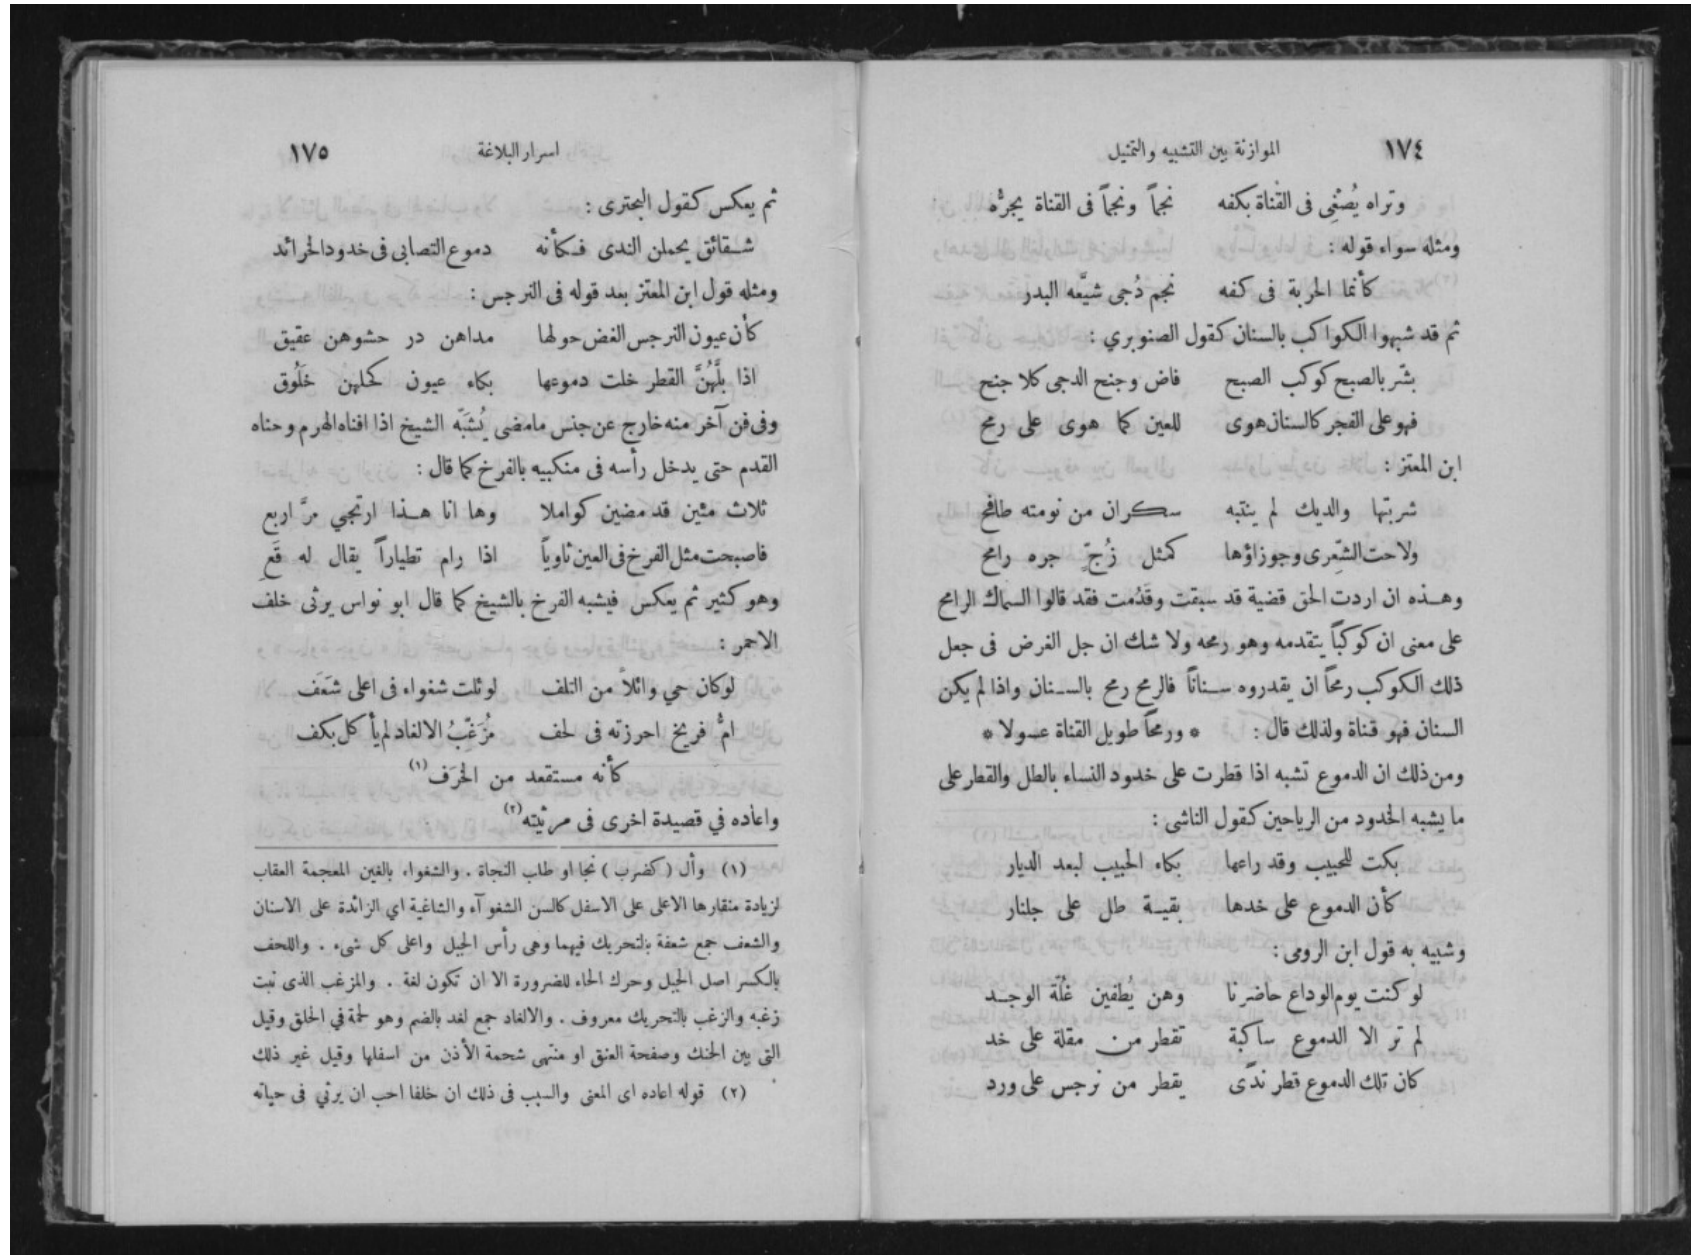 ١٧٤ الموازنة بين التشبيه والتمثيل
وتراه يُصْغِى فى القناة بكفه نجماً ونجماً فى القناة يجرُّه
ومثله سواء قوله :
كأنما الحربة فى كفه نجم دُجى شيَّعه البدر
ثم قد شبهوا الكواكب بالسنان كقول الصنوبري :
بشّر بالصبح كوكب الصبح فاض وجنح الدجى كلا جنح
فهو على الفجر كالسنان هوى للعين كما هوى على رمح
ابن المعتز :
شربتها والديك لم ينتبه سكران من نومته طافح
ولاحت الشِّعرى وجوزاؤها كمثل زُجّ جره رامح
وهذه ان اردت الحق قضية قد سبقت وقَدُمت فقد قالوا السماك الرامح
على معنى ان كوكباً يتقدمه وهو رمحه ولا شك ان جل الغرض فى جعل
ذلك الكوكب رمحاً ان يقدروه سناناً فالرمح رمح بالسنان واذا لم يكن
السنان فهو قناة ولذلك قال : * ورمحاً طويل القناة عسولا *
ومن ذلك ان الدموع تشبه اذا قطرت على خدود النساء بالطل والقطر على
ما يشبه الخدود من الرياحين كقول الناشى :
بكت للحبيب وقد راعها بكاء الحبيب لبعد الديار
كأن الدموع على خدها بقية طل على جلنار
وشبيه به قول ابن الرومى :
لو كنت يوم الوداع حاضرنا وهن يُطفين غلة الوجد
لم تر الا الدموع ساكبة تقطر من مقلة على خد
كان تلك الدموع قطر ندًى يقطر من نرجس على ورد
اسرار البلاغة ١٧٥
ثم يعكس كقول البحترى :
شقائق يحملن الندى فكأنه دموع التصابى فى خدود الخرائد
ومثله قول ابن المعتز بعد قوله فى النرجس :
كأن عيون النرجس الغض حولها مداهن در حشوهن عقيق
اذا بلَّهُنَّ القطر خلت دموعها بكاء عيون كحلهن خَلُوق
وفى فن آخر منه خارج عن جنس ما مضى يُشبَّه الشيخ اذا افناه الهرم وحناه
القدم حتى يدخل رأسه فى منكبيه بالفرخ كما قال :
ثلاث مئين قد مضين كواملا وها انا هذا ارتجي مرَّ اربع
فاصبحت مثل الفرخ فى العين ثاوياً اذا رام تطياراً يقال له قَعِ
وهو كثير ثم يعكس فيشبه الفرخ بالشيخ كما قال ابو نواس يرثى خلف
الاحمر :
لو كان حي وائلاً من التلف لوئلت شغواء فى اعلى شَعَف
امُّ فريخ احرزته فى لحف مُزَغَّبُ الالغاد لم يأ كل بكف
كأنه مستقعد من الخرَف (١)
واعاده في قصيدة اخرى فى مرثيته (٢)
(١) وأل ( كضرب ) نجا او طاب النجاة . والشغواء بالغين المعجمة العقاب
لزيادة منقارها الأعلى على الاسفل كالسن الشغو آء والشاغية اي الزائدة على الاسنان
والشعف جمع شعفة بالتحريك فيهما وهى رأس الجبل واعلى كل شىء . واللحف
بالكسر اصل الجبل وحرك الحاء للضرورة الا ان تكون لغة . والمزغب الذى نبت
زغبه والزغب بالتحريك معروف . والالغاد جمع لغد بالضم وهو لحمة في الحلق وقيل
التى بين الحنك وصفحة العنق او منتهى شحمة الأذن من اسفلها وقيل غير ذلك
(٢) قوله اعاده اى المعنى والسبب فى ذلك ان خلفا احب ان يرثي فى حياته